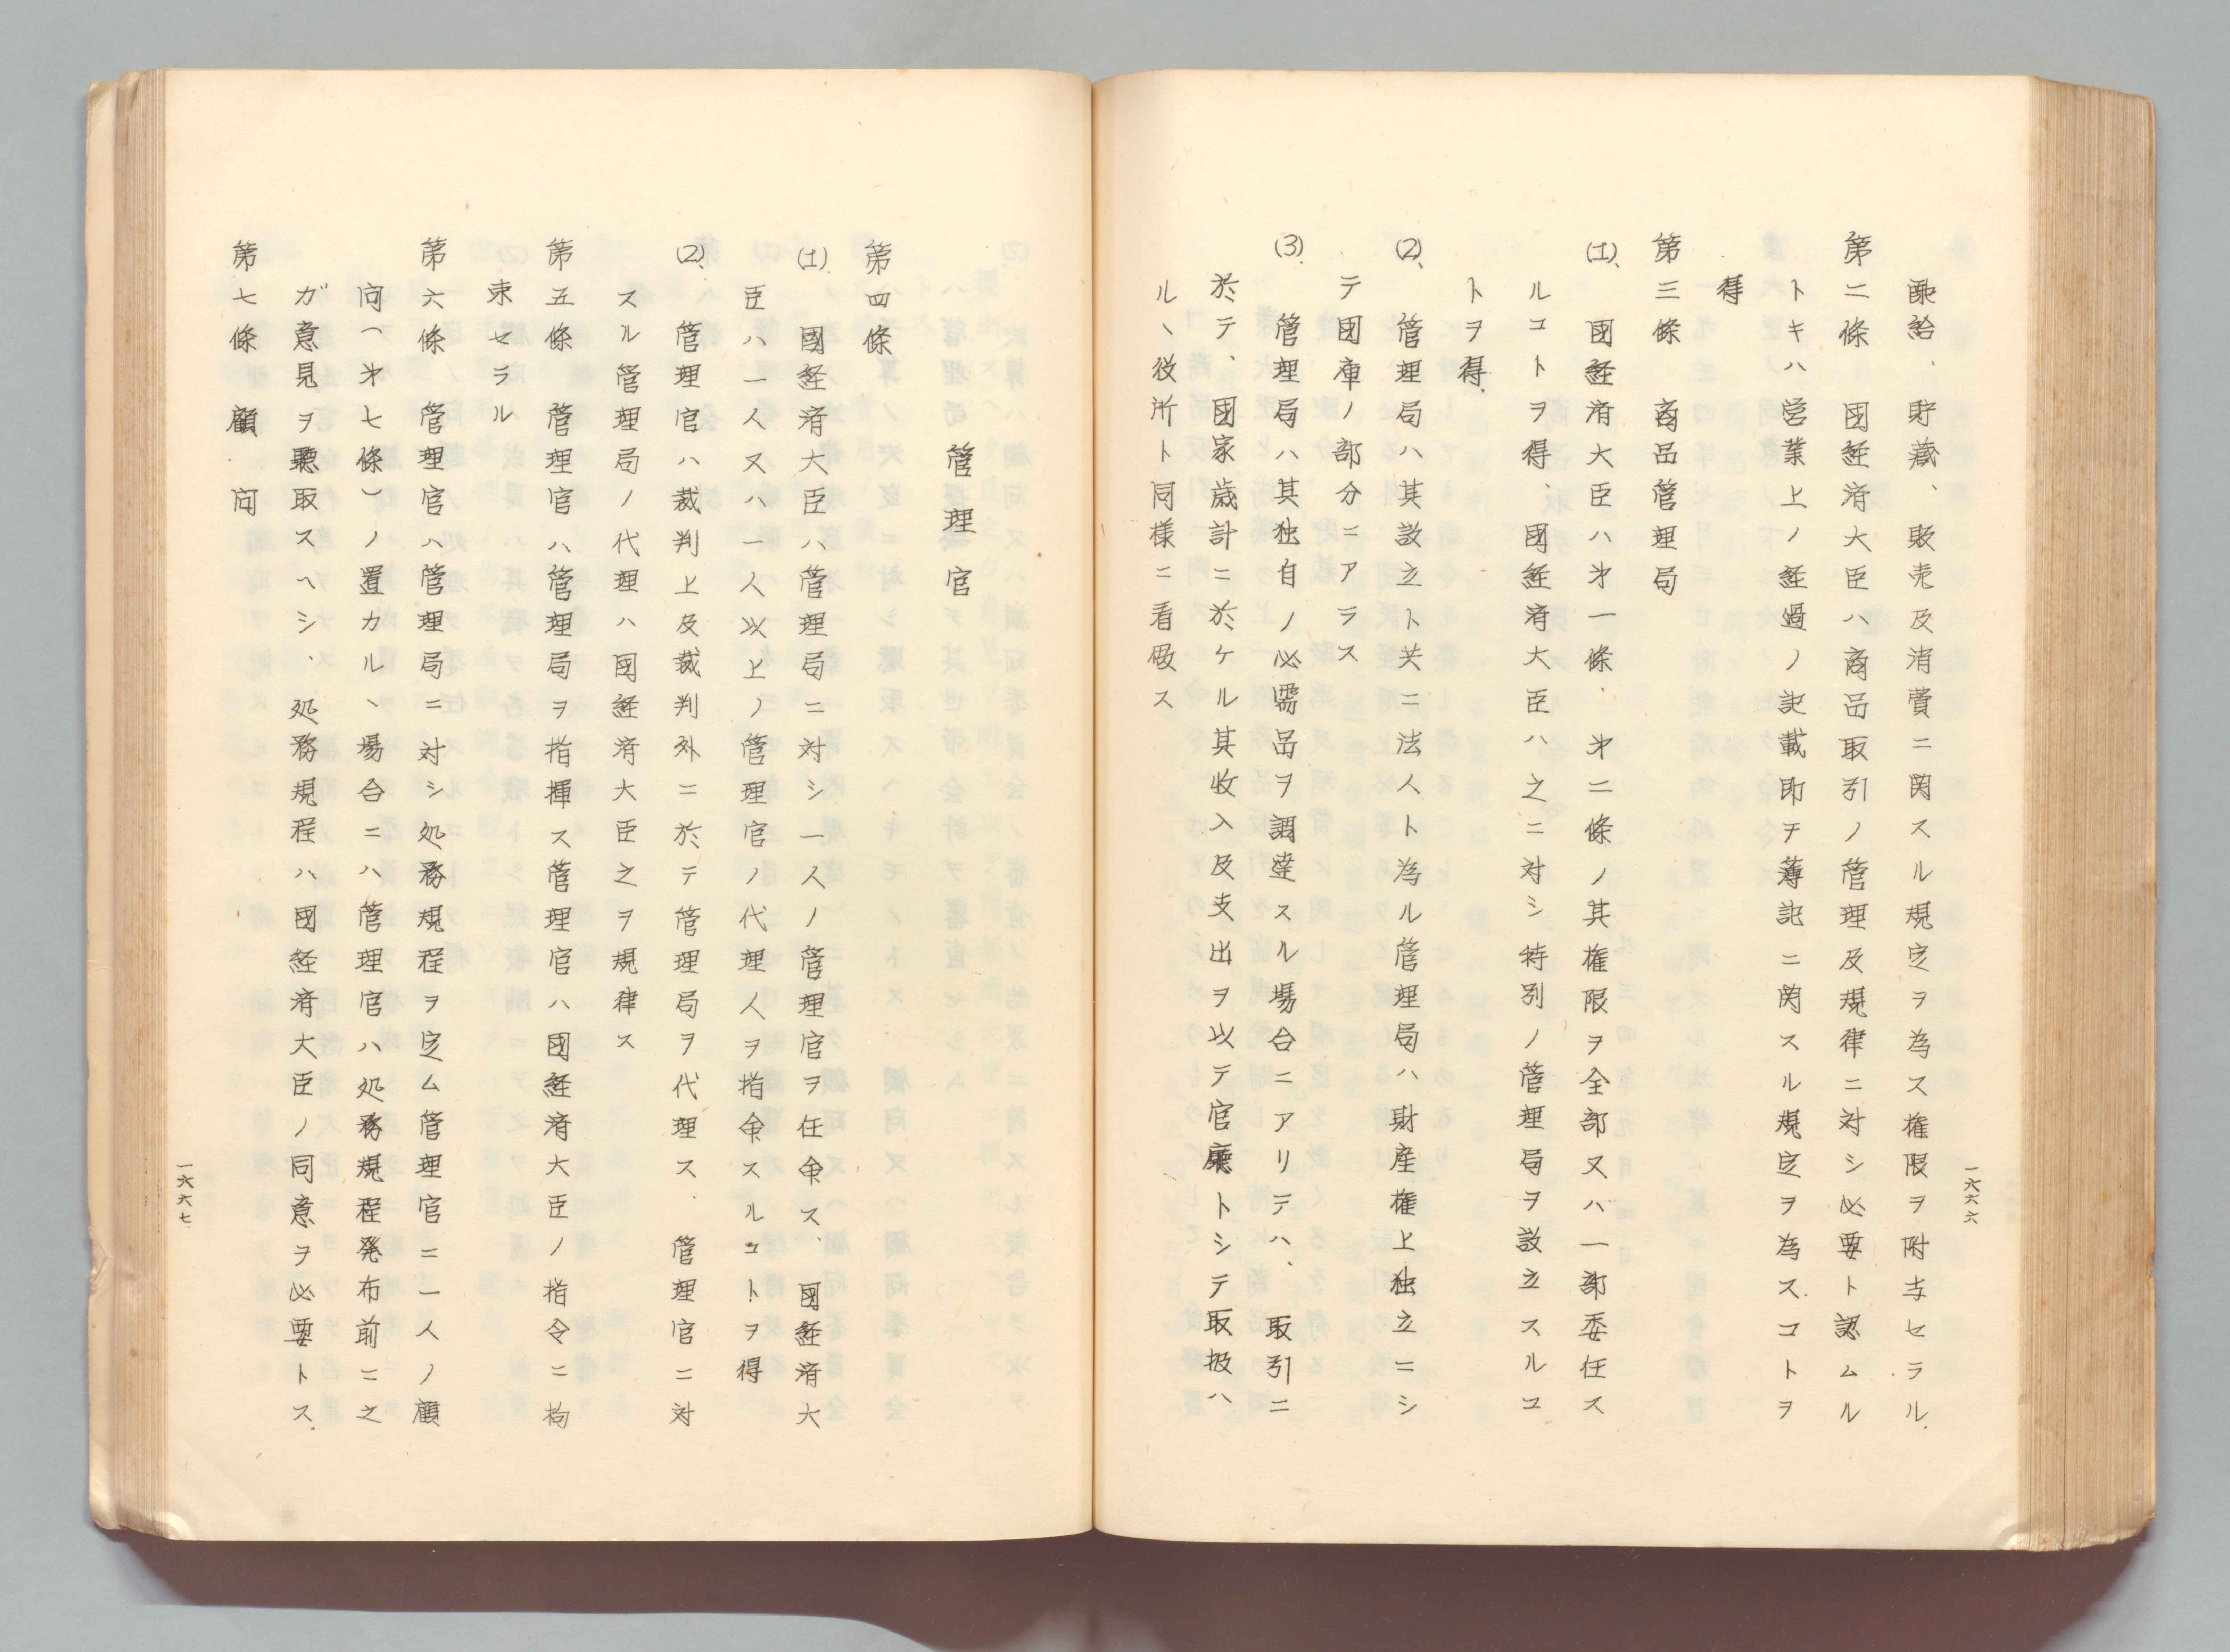 配給、貯蔵、販売及消費ニ関スル規定ヲ為ス権限ヲ附与セラル.
第二條 國経済大臣ハ商品取引ノ管理及規律ニ対シ必要ト認ムル
トキハ営業上ノ経過ノ記載即チ薄記ニ関スル規定ヲ為スコトヲ
得
第三條 商品管理局
(1)、國経済大臣ハ㐧一條、㐧二條ノ其権限ヲ全部又ハ一部委任ス
ルコトヲ得、國経済大臣ハ之ニ対シ特別ノ管理局ヲ設立スルコ
トヲ得.
(2)、管理局ハ其設立ト共ニ法人ト為ル管理局ハ財産権上独立ニシ
テ國庫ノ部分ニアラス
(3)、管理局ハ其独自ノ必需品ヲ調達スル場合ニアリテハ、取引ニ
於テ、國家歳計ニ於ケル其收入及支出ヲ以テ官廰トシテ取扱ハ
ル、役所ト同様ニ看做ス
一六六六
管理官
第四條
(1)、國経済大臣ハ管理局ニ対シ一人ノ管理官ヲ任命ス、國経済大
臣ハ一人又ハ一人以上ノ管理官ノ代理人ヲ指命スルコトヲ得
(2)、管理官ハ裁判上及裁判外ニ於テ管理局ヲ代理ス. 管理官ニ対
スル管理局ノ代理ハ國経済大臣之ヲ規律ス
第五條 管理官ハ管理局ヲ指揮ス管理官ハ國経済大臣ノ指令ニ拘
束セラル
第六條 管理官ハ管理局ニ対シ処務規程ヲ定ム管理官ニ一人ノ顧
问(㐧七條)ノ置カル、場合ニハ管理官ハ処務規程発布前ニ之
ガ意見ヲ聴取スヘシ. 処務規程ハ國経済大臣ノ同意ヲ必要トス.
第七條 顧问
一六六七